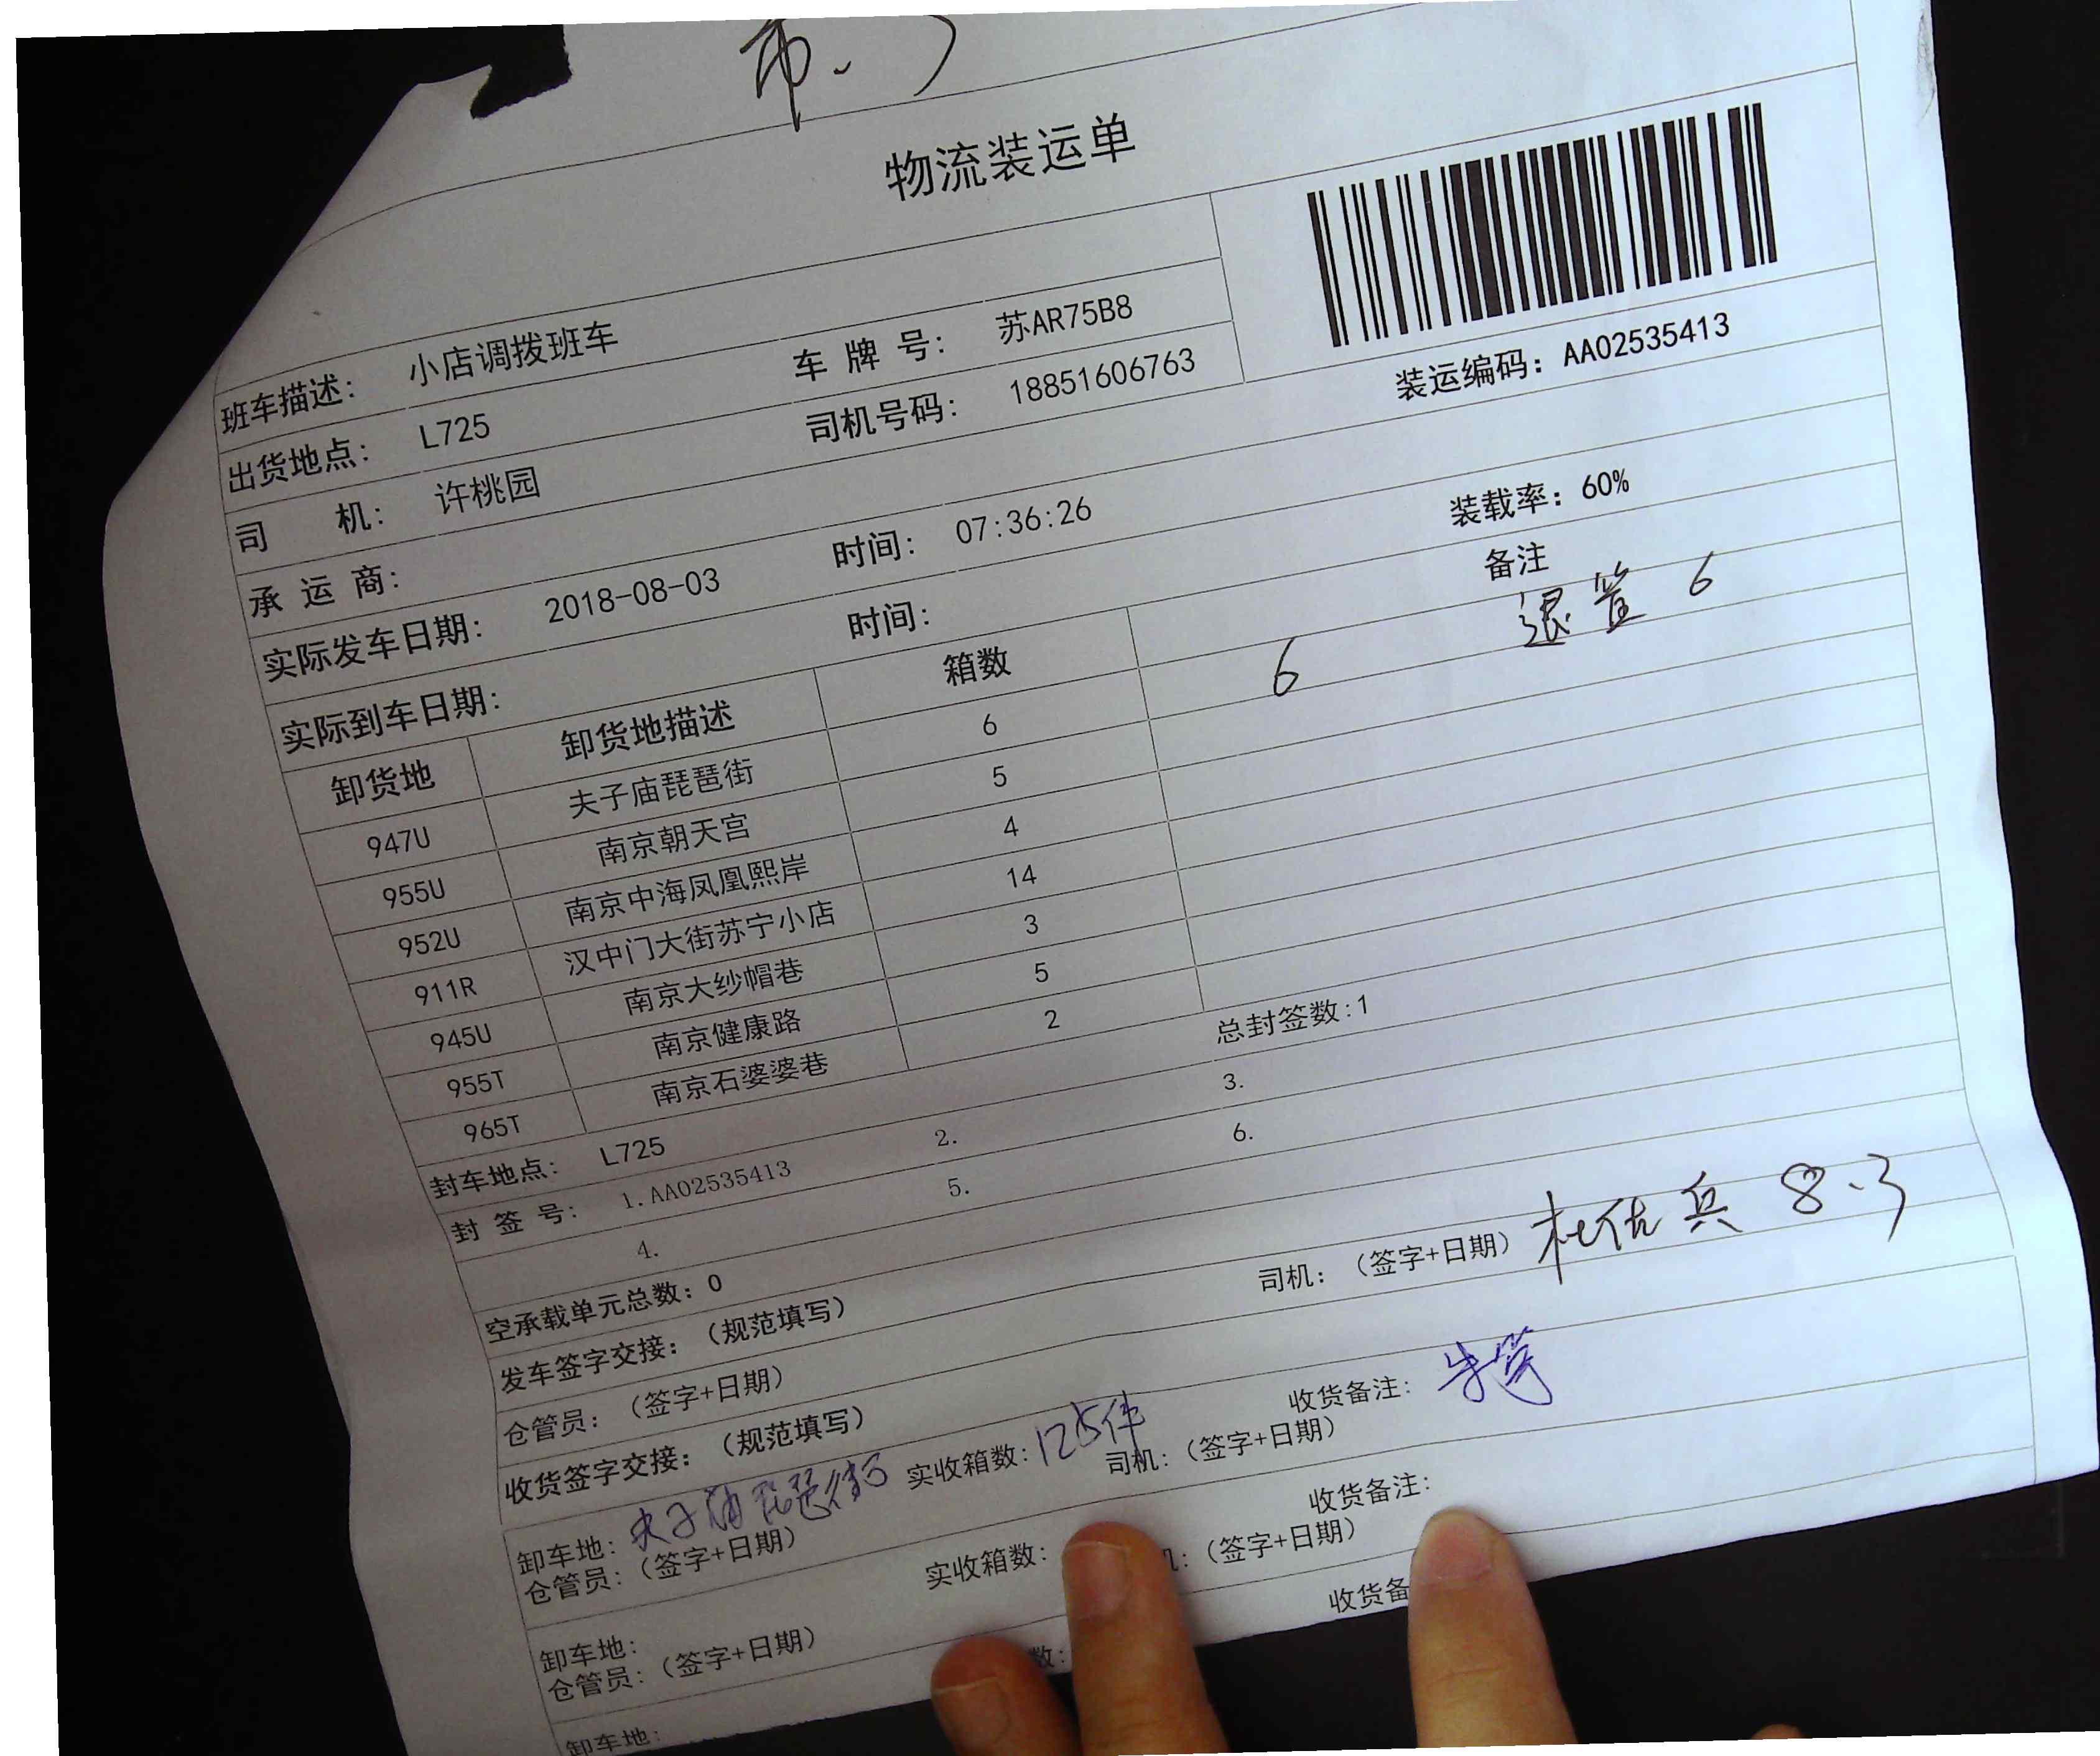 物流装运单
班车描述: 小店调拨班车 车牌号: 苏AR75B8
出货地点: L725 司机号码: 18851606763
司机: 许桃园 装运编码: AA02535413
承运商:
实际发车日期: 2018-08-03 时间: 07:36:26 装载率: 60%
实际到车日期: 时间:
卸货地 卸货地描述 箱数 备注
947U 夫子庙琵琶街 6 6 退筐 6
955U 南京朝天宫 5
952U 南京中海凤凰熙岸 4
911R 汉中门大街苏宁小店 14
945U 南京大纱帽巷 3
955T 南京健康路 5
965T 南京石婆婆巷 2
封车地点: L725 总封签数:1
封签号: 1.AA02535413 2. 3.
4. 5. 6.
空承载单元总数: 0
发车签字交接: (规范填写)
仓管员: (签字+日期) 司机: (签字+日期) 杜佐兵 8.3
收货签字交接: (规范填写)
卸车地: 夫子庙琵琶街 实收箱数: 125件 收货备注:
仓管员: (签字+日期) 司机: (签字+日期)
卸车地: 实收箱数: 收货备注:
仓管员: (签字+日期) 机: (签字+日期)
卸车地: 数: 收货备